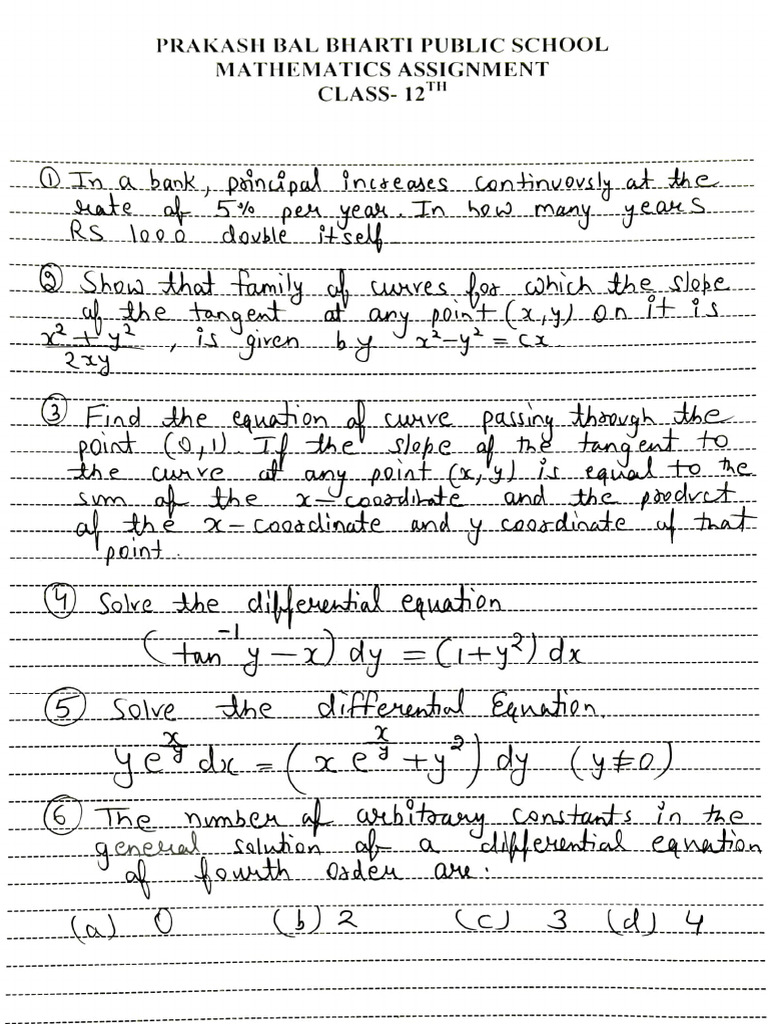 PRAKASH BAL BHARTI PUBLIC SCHOOL
MATHEMATICS ASSIGNMENT
CLASS- 12TH
① In a bank, principal increases continuously at the
rate of 5% per year. In how many years
RS 1000 double itself
② Show that family of curves for which the slope
of the tangent at any point (x,y) on it is
x²+y²/2xy, is given by x²-y² = cx
③ Find the equation of curve passing through the
point (0,1). If the slope of the tangent to
the curve at any point (x,y) is equal to the
sum of the x-coordinate and the product
of the x-coordinate and y coordinate of that
point.
④ Solve the differential equation
(tan⁻¹y-x) dy = (1+y²) dx
⑤ Solve the differential Equation.
ye^(x/y) dx = (x e^(x/y) + y²) dy (y≠0)
⑥ The number of arbitrary constants in the
general solution of a differential equation
of fourth order are:
(a) 0 (b) 2 (c) 3 (d) 4